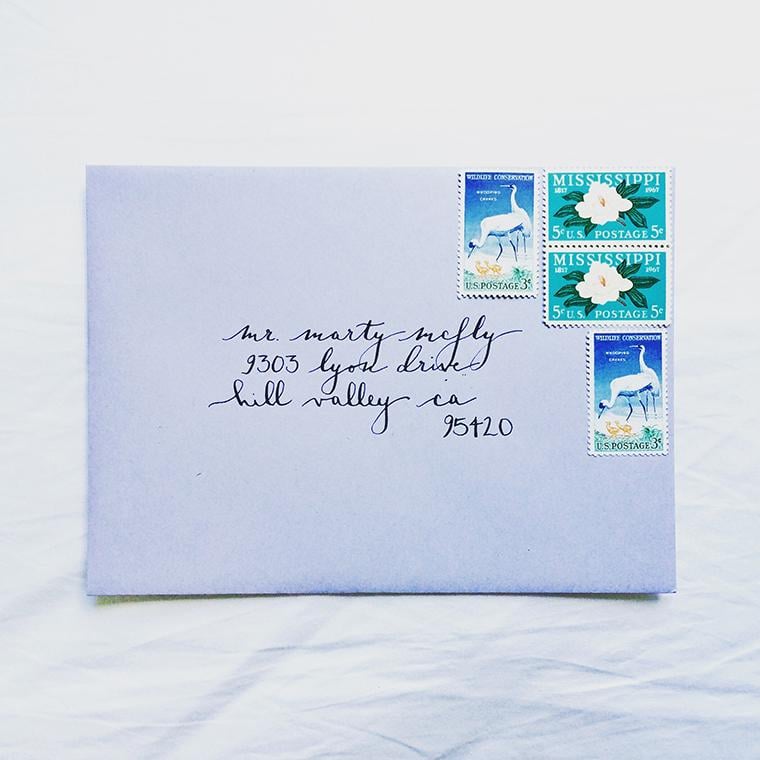 WILDLIFE CONSERVATION
WHOOPING
CRANES
U.S.POSTAGE 3¢
MISSISSIPPI
1817 1967
5¢ U.S. POSTAGE 5¢
MISSISSIPPI
1817 1967
5¢ U.S. POSTAGE 5¢
WILDLIFE CONSERVATION
WHOOPING
CRANES
U.S.POSTAGE 3¢
mr. marty mcfly
9303 lyon drive
hill valley ca
95420